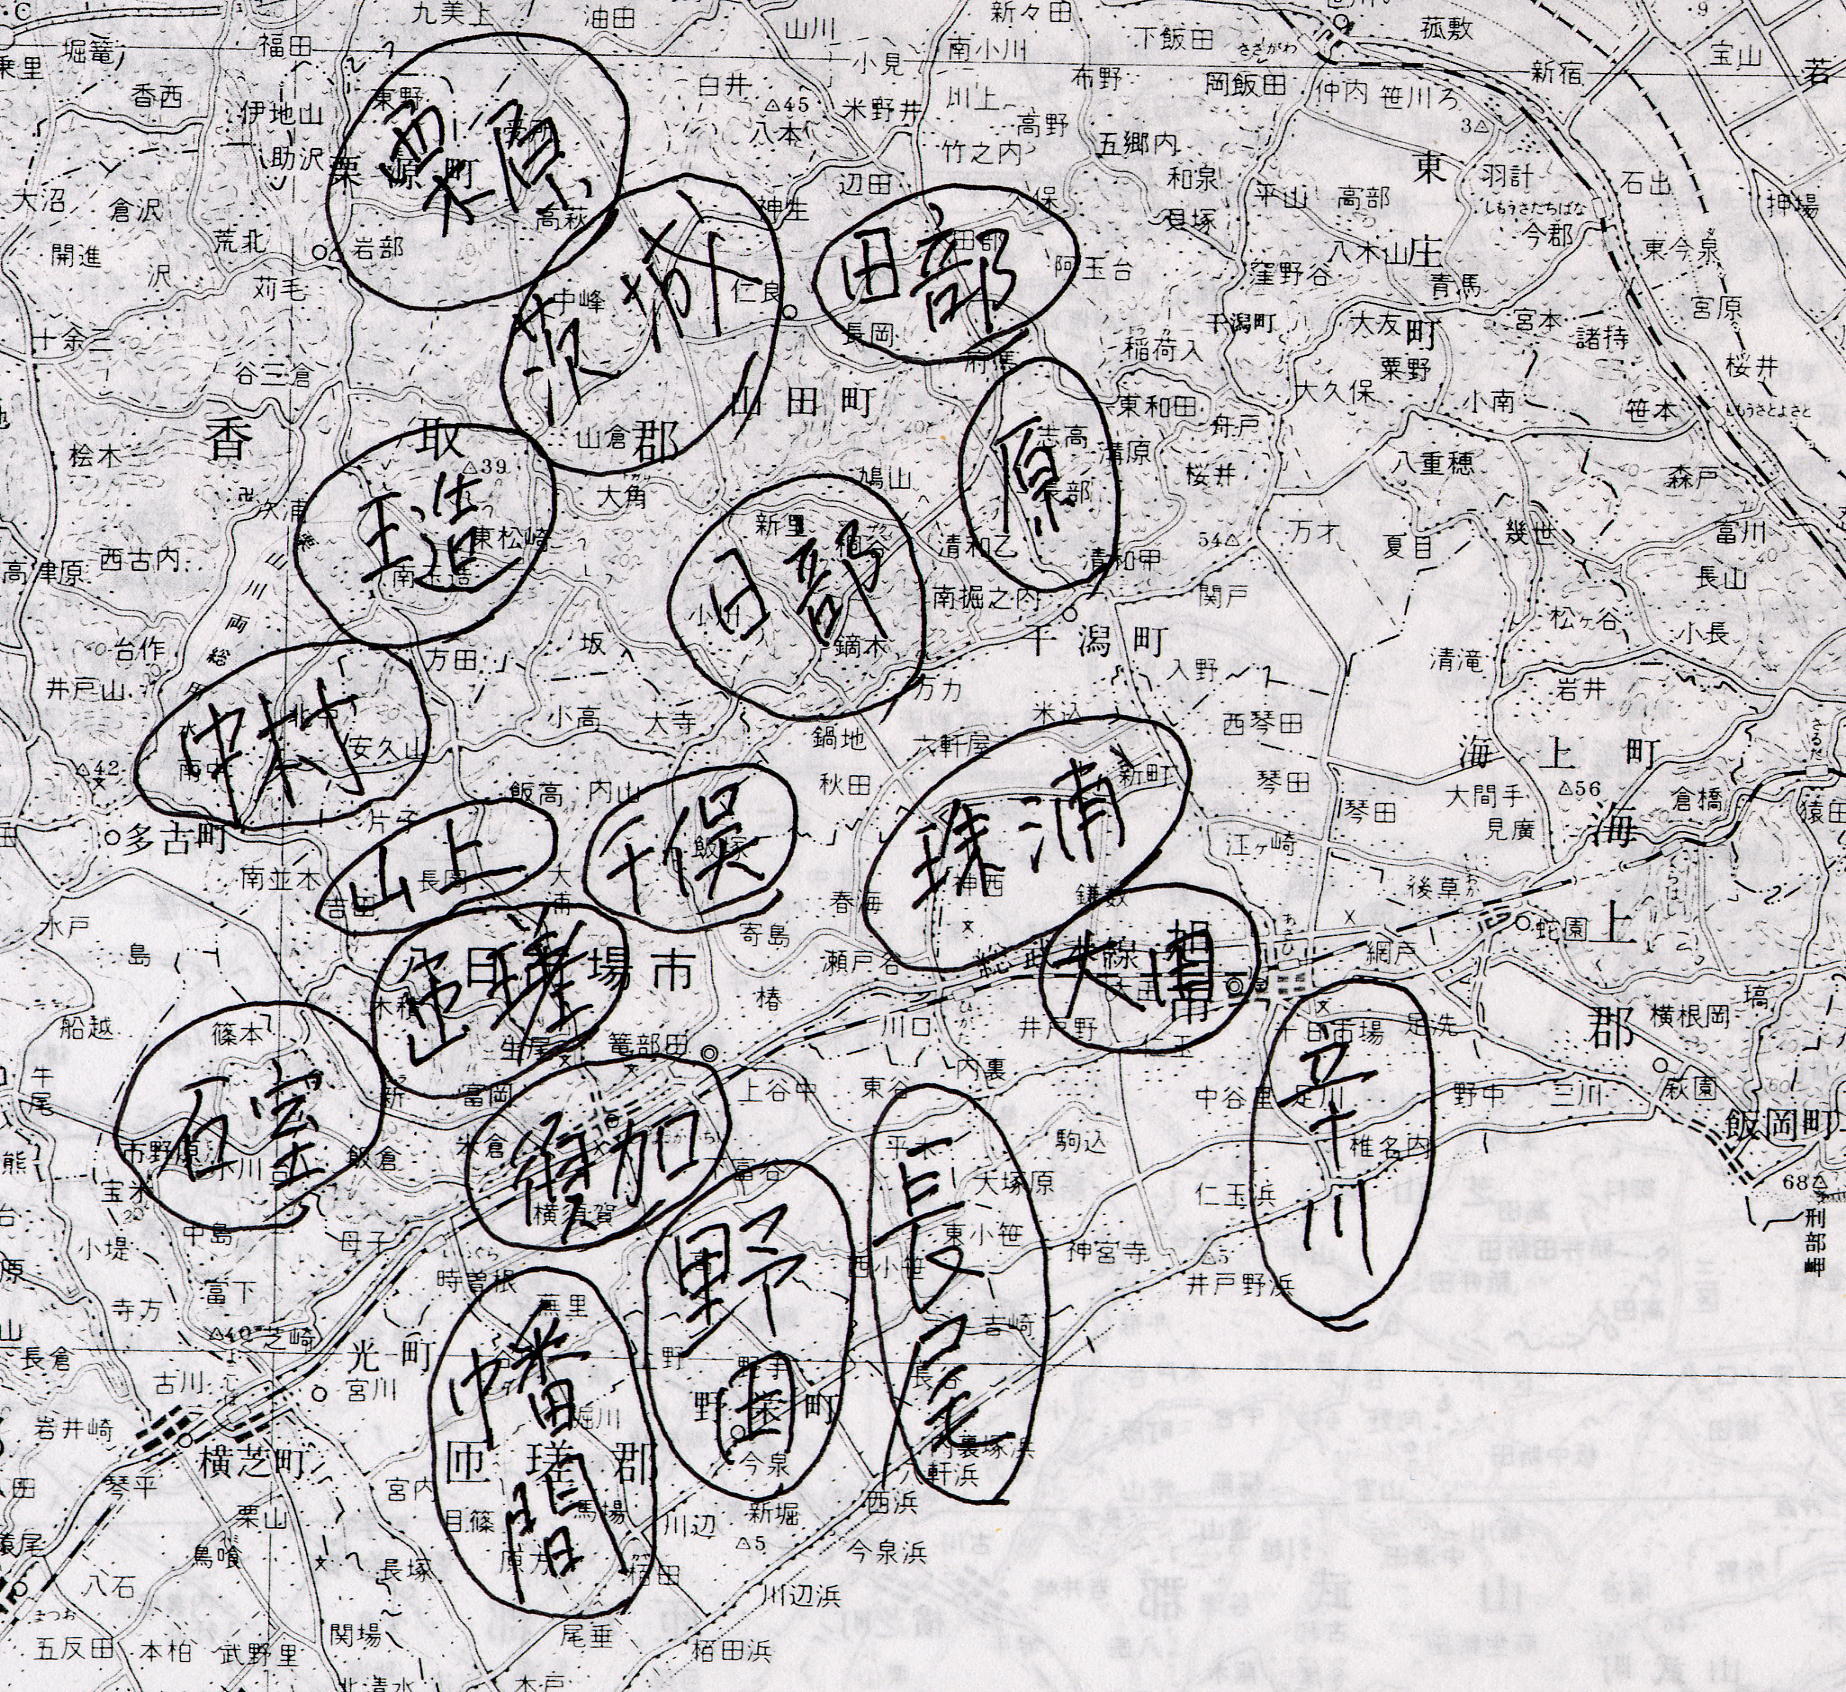 九美上
油田
山川
新々田
菰敷
堀篭
福田
南小川
下飯田
ささがわ
宝山
乗里
小見
布野
岡飯田
仲内
笹川ろ
新宿
若
香西
東野
白井
△45
米野井
川上
伊地山
八本
高野
五郷内
3△
助沢
栗源町
栗原
竹之内
東
羽計
石出
大沼
倉沢
高萩
神生
辺田
久保
和泉
平山
高部
しもうさたちばな
押場
開進
荒北
岩部
田部
貝塚
八木山
庄
今郡
東今泉
沢
苅毛
中峰
仁良
阿玉台
窪野谷
青馬
宮原
十余三
長岡
府馬
稲荷入
干潟町
大友
町
宮本
諸持
谷三倉
山田町
東和田
大久保
粟野
小南
笹本
桜井
しもうさとよさと
香
取
郡
山倉
原
志高
溝原
舟戸
桧木
△39
大角
鳩山
長部
桜井
八重穂
森戸
玉造
東松崎
新里
桐谷
清和乙
清和甲
万才
54△
夏目
幾世
富川
高津原
西古内
南玉造
日部
小川
鏑木
南堀之内
関戸
長山
台作
方田
坂
干潟町
松ヶ谷
小長
井戸山
中村
北中
万力
入野
清滝
岩井
安久山
小高
大寺
鍋地
六軒屋
米込
西琴田
海上町
△42
南中
飯高
内山
秋田
珠浦
新町
琴田
琴田
大間手
△56
倉橋
猿田
多古町
片子
千俣
飯塚
江ヶ崎
見廣
海
南並木
山上
長岡
吉田
春海
神西
鎌数
後草
水戸
島
匝瑳
八日市場市
寄島
瀬戸谷
総武本線
大田
網戸
蛇園
上
木積
椿
船越
篠本
生尾
篭部田
川口
井戸野
仁玉
平川
十日市場
足洗
郡
横根岡
塙
牛尾
石室
新
富岡
上谷中
東谷
内裏
中谷里
足川
野中
三川
萩園
飯岡町
市野原
小川台
飯倉
米倉
須加
横須賀
富谷
平木
駒込
椎名内
宝米
大塚原
仁玉浜
68△
刑部岬
小堤
中島
母子
野田
長尾
東小笹
神宮寺
△5
井戸野浜
時曽根
西小笹
寺方
富下
蕪里
吉崎
△40
芝崎
幡間
長倉
光町
上野
野手
長谷
古川
宮川
堀川
野栄町
岩井崎
横芝町
匝瑳郡
今泉
内裏塚浜
八軒浜
琴平
宮内
目篠
馬場
川辺
新堀
西浜
栗山
鳥喰
長塚
原方
栢田
△5
今泉浜
八石
川辺浜
まつお
五反田
本柏
武野里
関場
尾垂
栢田浜
北清水
木戸